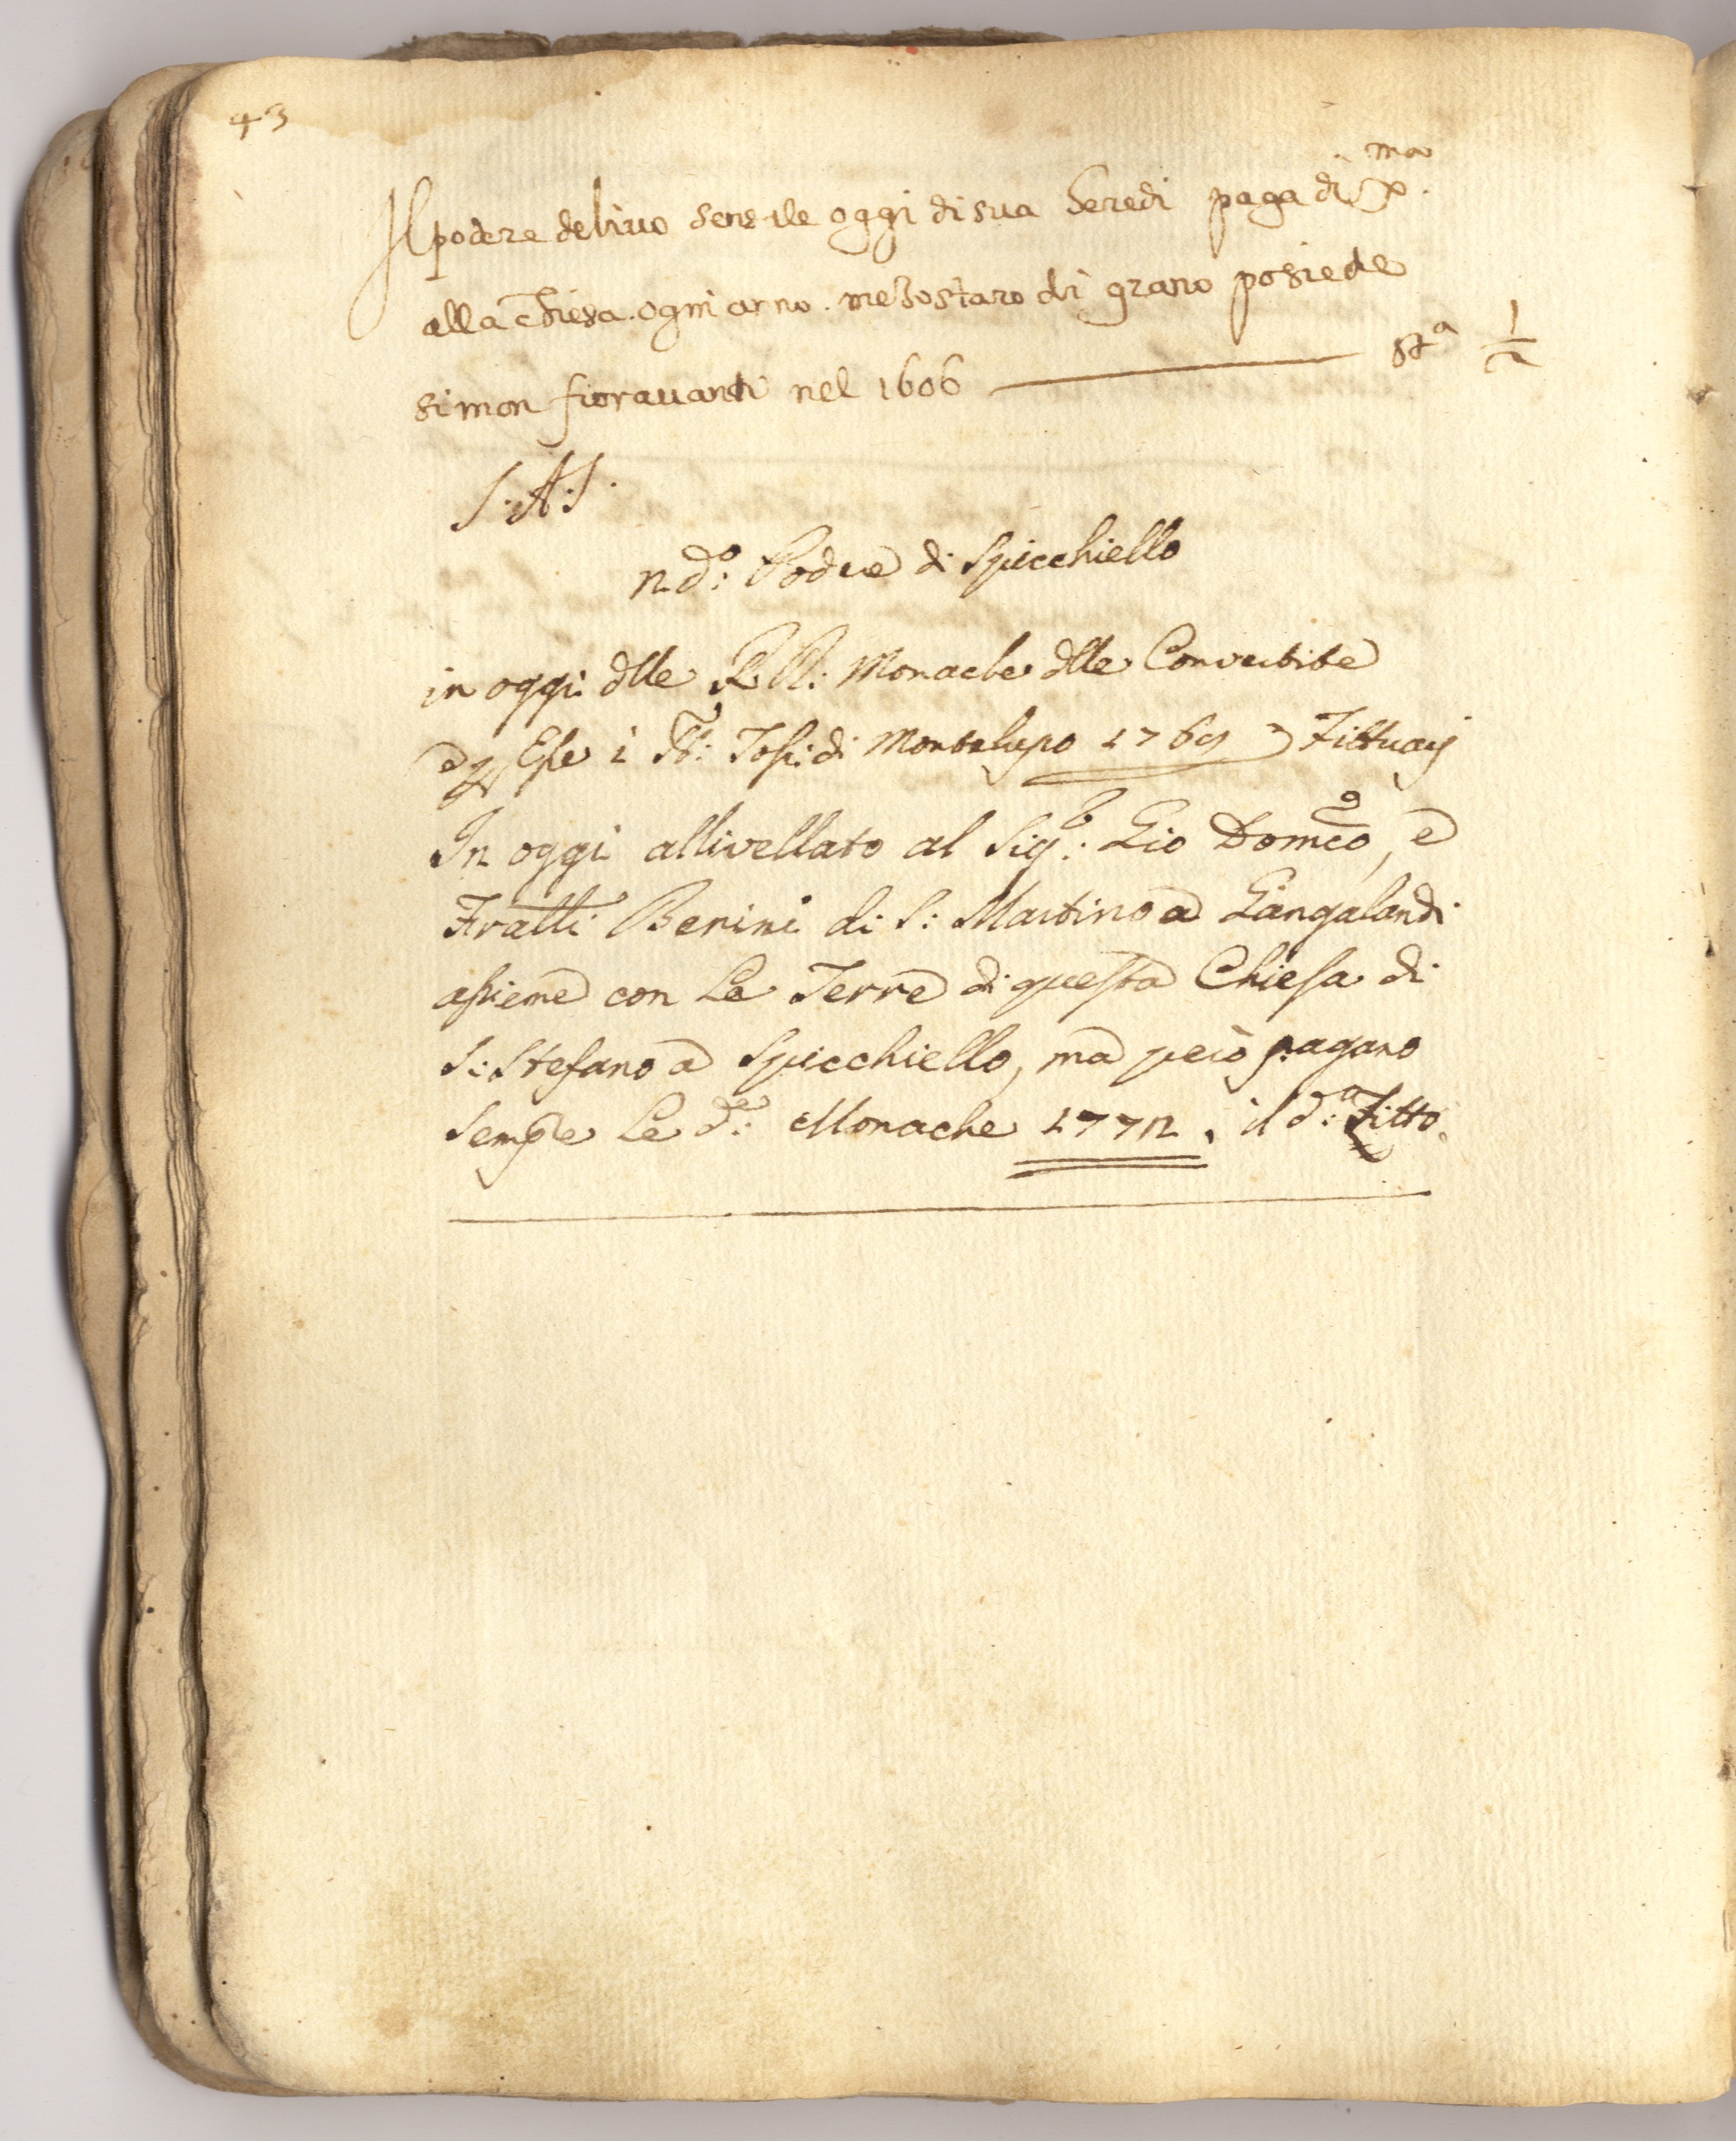 43
Il podere delivo sensale oggi di sua heredi paga di Xma.
alla chiesa. ogni anno. mezostaro di grano posiede
simon fioravanti nel 1606 — sta ½
S:A:S.
n. do: Podere di Spicchiello
in oggi dlle RR: Monache dlle Convertite
e p Esse i Tosi di Montelupo 1769 Fittuarj
In oggi allivellato al Sigr: Gio Domco, e
Fratlli Benini di S: Martino a Gangalandi
assieme con Le Terre di questa Chiesa di
S: Stefano a Spicchiello, ma però pagano
Sempre Le de: Monache 1772. il do: Fitto.